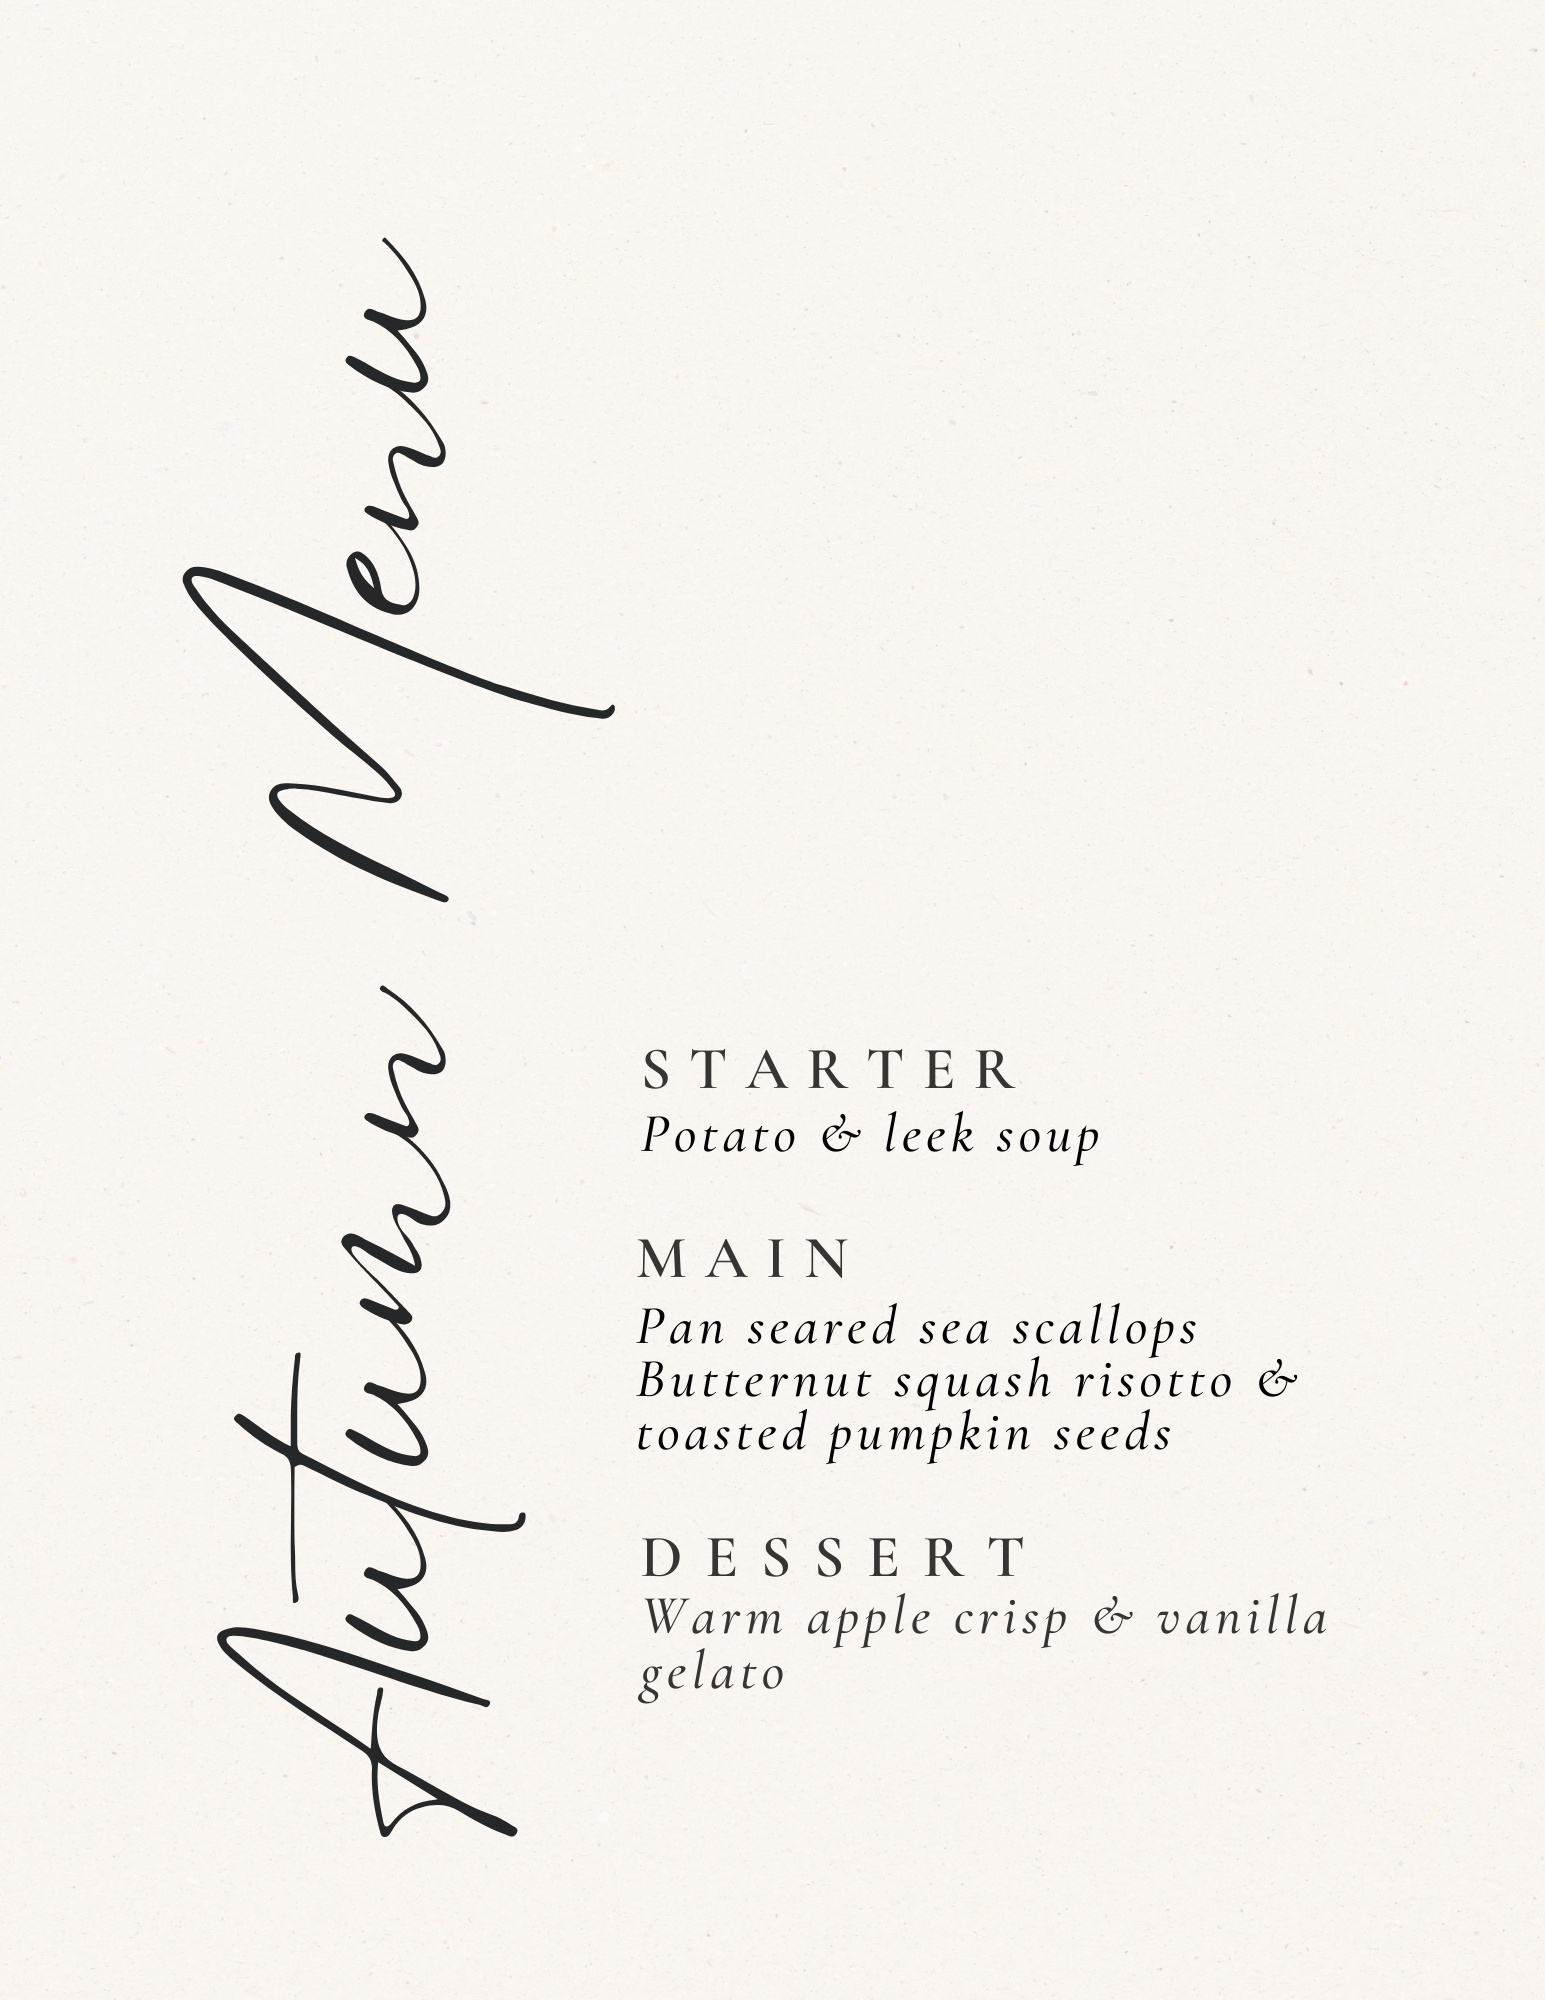 Autumn Menu
STARTER
Potato & leek soup
MAIN
Pan seared sea scallops
Butternut squash risotto &
toasted pumpkin seeds
DESSERT
Warm apple crisp & vanilla
gelato